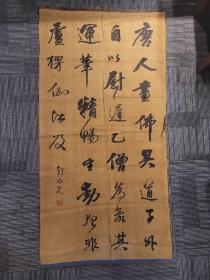 唐人畫佛吳道子外
自以尉遲乙僧為最其
運筆精暢生動殆非
盧楞伽所及